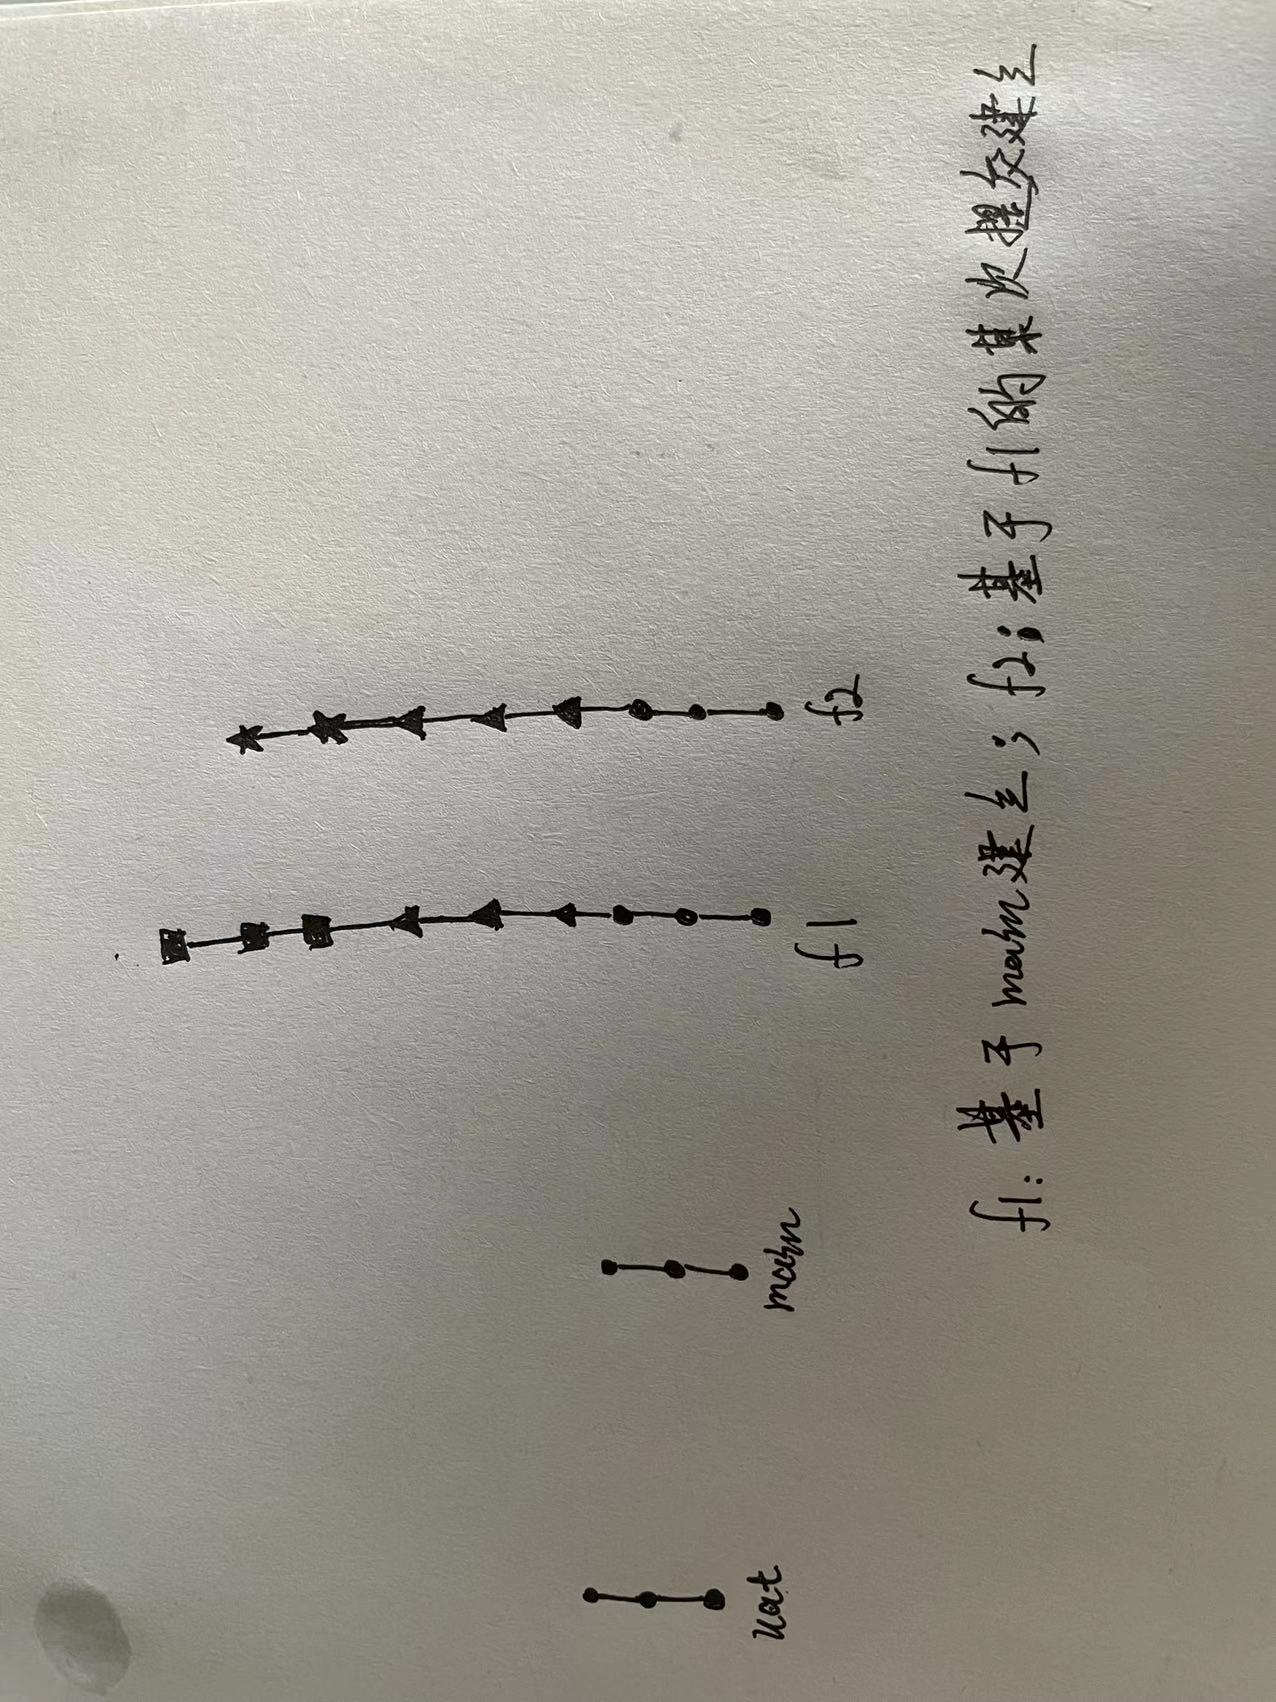 uat
main
f1
f2
f1: 基于main建立; f2: 基于f1的某次提交建立